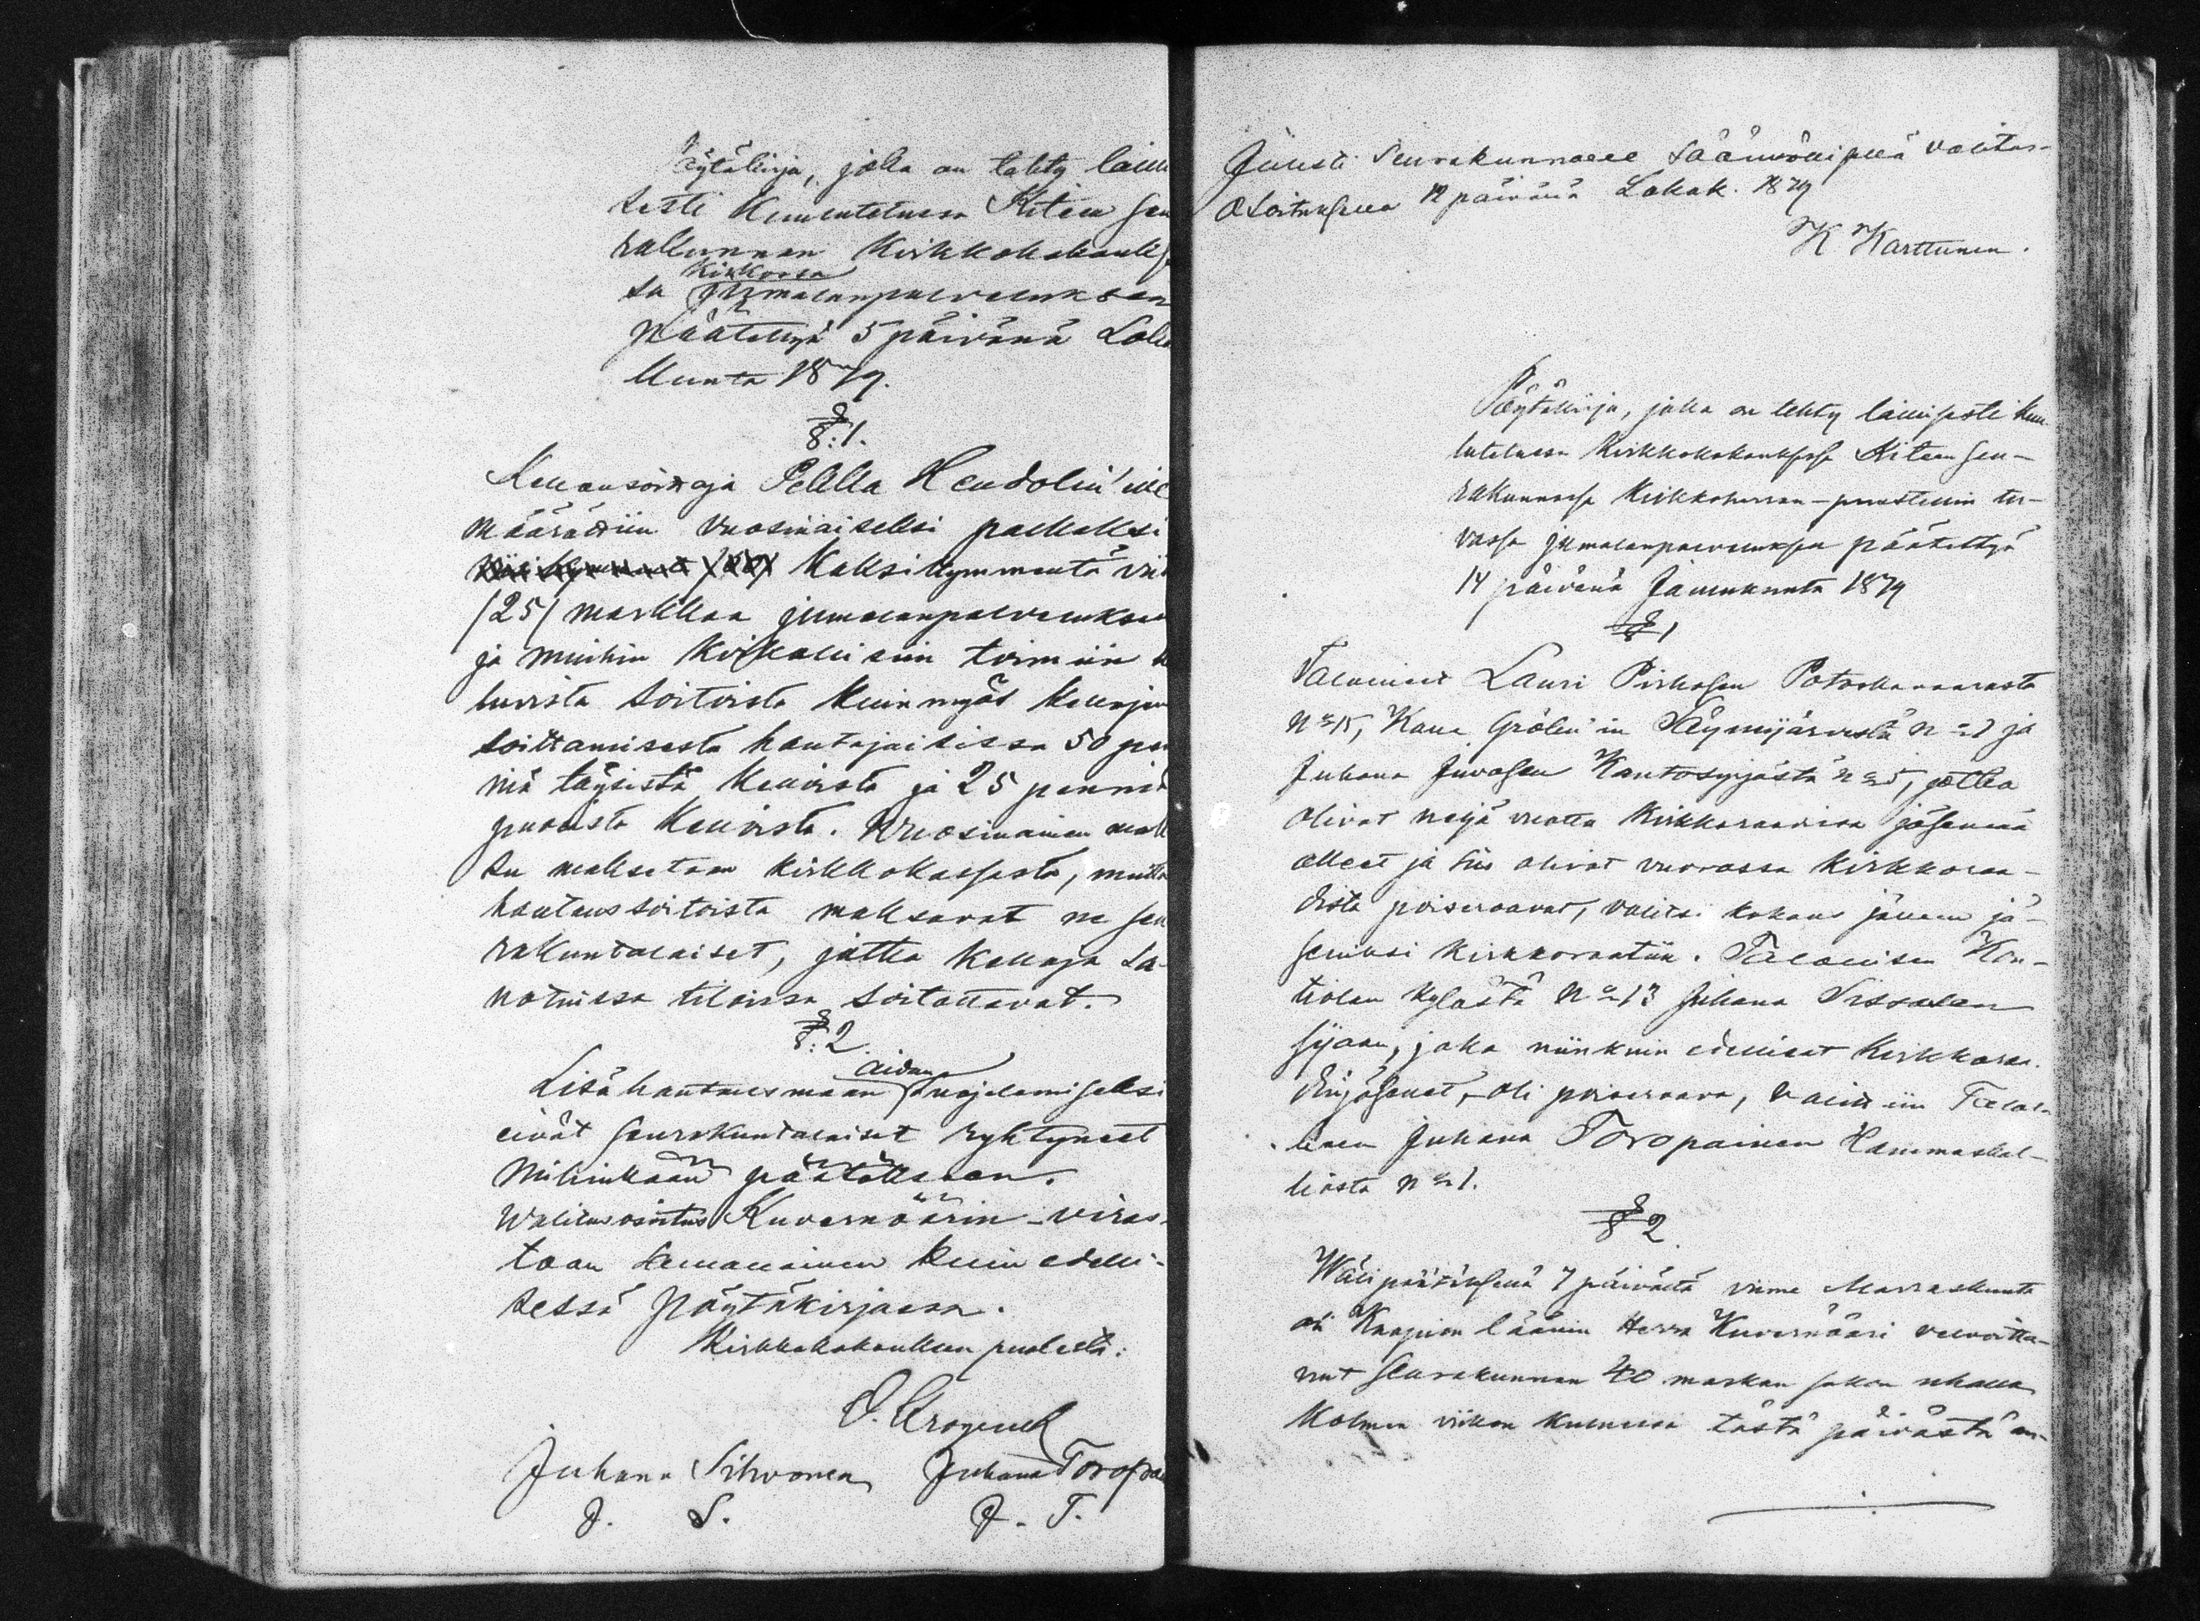 Pöytäkirja, joka on tehty lailli
sesti kuulutetussa Kiteen seu
rakunnan kirkkokokoukse
kirkossa
sa jumalanpalveluksen
päätettyä 5 päivänä Loka
kuuta 1879.
§: 1.
Kellonsoittaja Pekka Heudolin'ille
määrättiin vuosinaiseksi palkaksi
kaksikymmentä vii
/25/ markkaa jumalanpalveluksen
ja muihin kirkollisiin toimiin k
luvista soitoista kuin myös kellojen
soittamisesta hautajaisissa 50 pen
niä täysistä kelloista ja 25 penniä
puolista kelloista. Wuosinainen mak
su maksetaan kirkkokassasta, mutta
hautaussoitoista maksavat ne seu
rakuntalaiset, jotka kelloja sa-
notuissa tiloissa soitattavat.
§: 2
aidan
Lisä hautausmaan suojelemiseksi
eivät seurakuntalaiset ryhtyneet
mihinkään päätökseen.
Walitusosoitus Kuvernöörin-viras-
toon samanlainen kuin edelli-
sessä pöytäkirjassa.
Kirkkokokouksen puolesta:
Juhana Sihvonen Juhana Toropai
J. S. J. T.
Julisti seurakunnalle säännöllisellä valitus-
osoituksella 12 päivänä Lokak. 1879
K Karttunen.
Pöytäkirja, joka on tehty laillisesti kuu-
lutetussa kirkkokokouksessa Kiteen seu-
rakunnassa kirkkoherran-puustellin tu-
vassa jumalanpalveluksen päätettyä
14 päivänä Jouluukuuta 1879
§ 1
Talolliset Lauri Pirhosen Potoskavaarasta
No 15, Gröhn'in Näymijärvestä No 7 ja
Juhana Juvosen Kantosyrjästä No 5, jotka
olivat neljä vuotta kirkkoraadissa jäseninä
olleet ja siis olivat vuorossa kirkkoraa-
dista poiseroavat, valitsi kokous jälleen jä-
seniksi kirkkoraatiin. Talollisen Kon-
tiolan kylästä No 13 Juhana Sissosen
sijaan, joka niinkuin edelliset kirkkoraa-
dinjäsenet, oli poiseroava, valittiin Talol-
linen Juhana Toropainen Hammaskal-
liosta No 1.
§ 2
Wälipäätöksenä 7 päivältä viime Marraskuuta
oli Kuopion läänin Herra Kuvernööri velvoitta-
nut seurakunnan 40 markan sakon uhalla
kolmen viikon kuluessa tästä päivästä an-